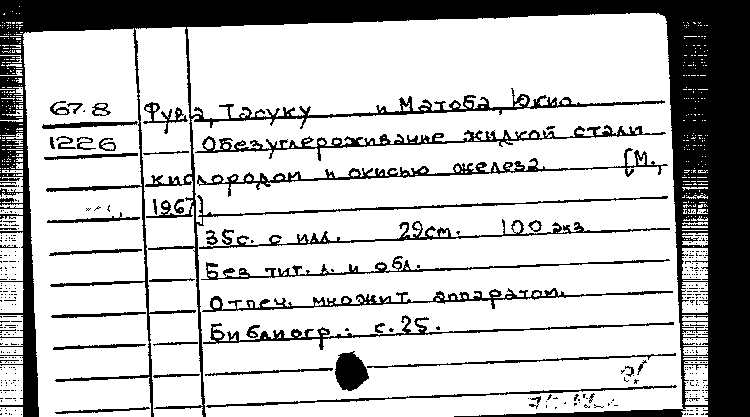 67.8 Фува, Тасуку и Матоба, Юкио.
1226 Обезуглероживание жидкой стали
кислородом и окисью железа. [М.,
1967].
35с. с илл. 29см. 100 экз.
Без тит. л. и обл.
Отпеч. множит. аппаратом.
Библиогр.: с.25.